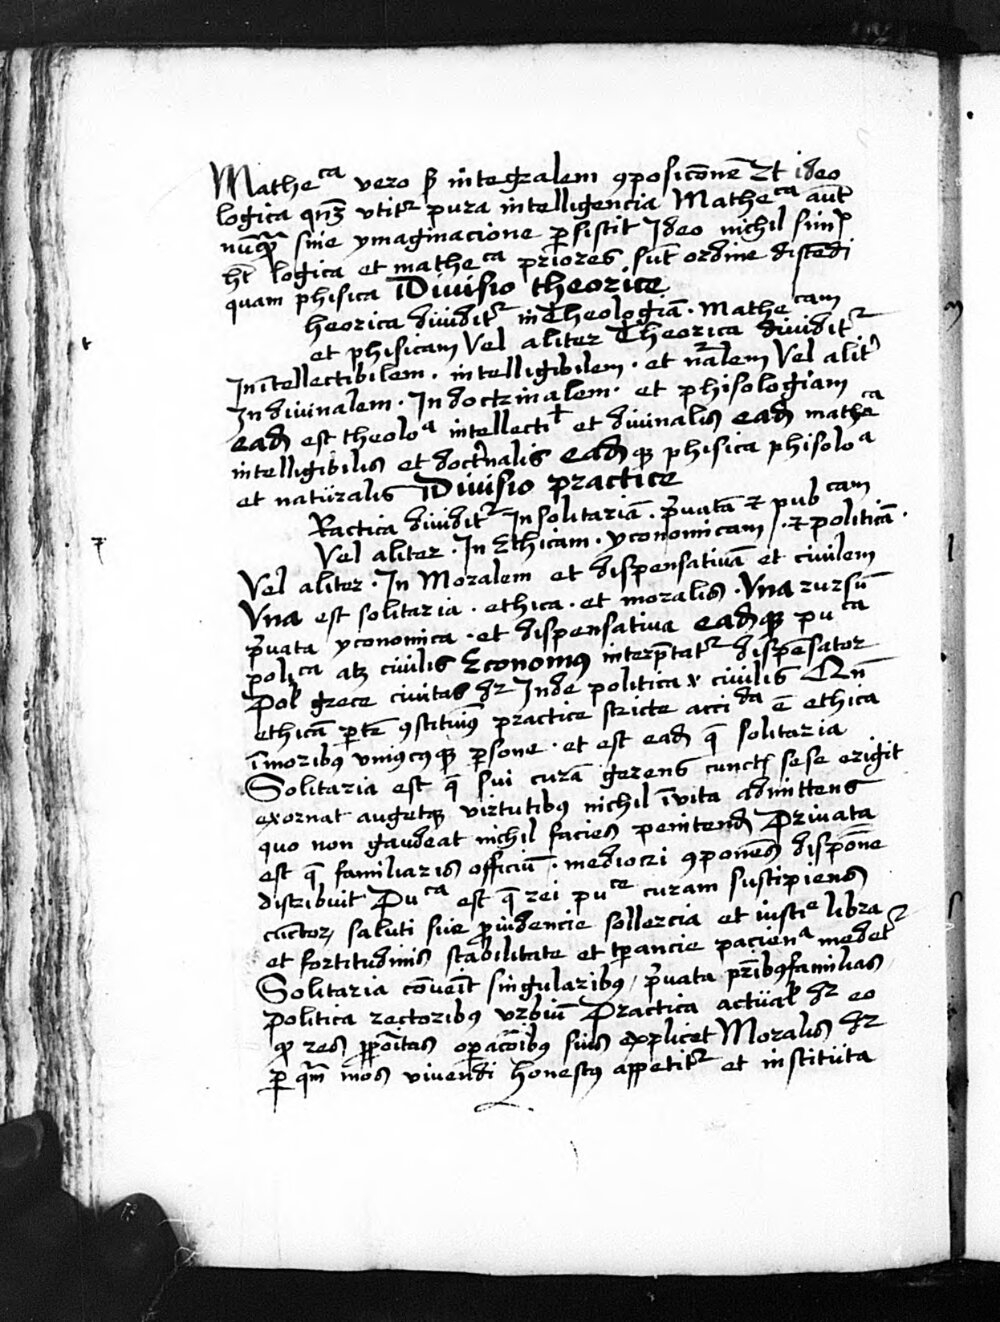 Matheca vero ẜ integralem ꝯposicōnē Et ideo
logica qn̄ꝫ vtitᷣ pura intelligencia Matheca aūt
nūq̄ꝫ sine ymaginacione ꝑsistit Ideo nichil simꝉ
hꝫ logica et matheca priores sūt ordine discēdi
quam phisica Diuisio theorice
heorica diuiditᷣ in Theologiā · mathecam
et phisicam Vel aliter Theorica diuiditᷣ
In ītellectibilem · intelligibilem · et nr̄alem Vel alitᷣ
In diuinalem · In doctrinalem · et phisologiam
eadꝫ est theoloa intellectit et diuinalis eadꝫ matheca
intelligibilis et doctᷣnalis eadꝫ qꝫ phisica phisoloa
et naturalis Diuisio practice
Ractica diuiditᷣ In solitariā · p̄uatā et pubcam
Vel aliter · In Ethicam · yconomicam / · et politicā ·
Vel aliter · In Moralem et dispensatiuā et ciuilem
Vna est solitaria · ethica · et moralis · Vna rursū
p̄uata yconomica · et dispensatiua eadꝫ qꝫ puca
polica atqꝫ ciuilis Economꝰ interp̄tatᷣ dispēsator
Pol grece ciuitas dr̄ Inde politica ciuilis Qn̄
ethicā ꝑtē ꝯstituimꝰ practice stricte accida ē ethica
ī moribꝰ vniꝰcuiꝰqꝫ ꝑsone · et est eadꝫ q̄ solitaria
Solitaria est q̄ sui curā gerens cunctꝭ sese erigit
exornat augetqꝫ virtutibꝰ nichil ī vita admittens
quo non gaudeat nichil facies penitendꝫ Priuata
est q̄ familiaris officiū · mediocri ꝯponēs dispōne
distribuit Puca est q̄ rei puce curam suscipiens
cūctorꝫ saluti sue ꝓuidencie sollercia et iustie libra
et fortitudinis stabilitate et tꝑancie paciena medetᷣ
Solitaria cōuenit singularibꝰ / p̄uata pr̄ibꝰfamilias
politica rectoribꝰ vrbiū Practica actual dr̄ eo
qꝫ res ꝓpōitas oꝑacōibꝰ suis explicet Moralis dr̄
ꝑ quā mos viuendi honestꝰ appetitᷣ et instituta